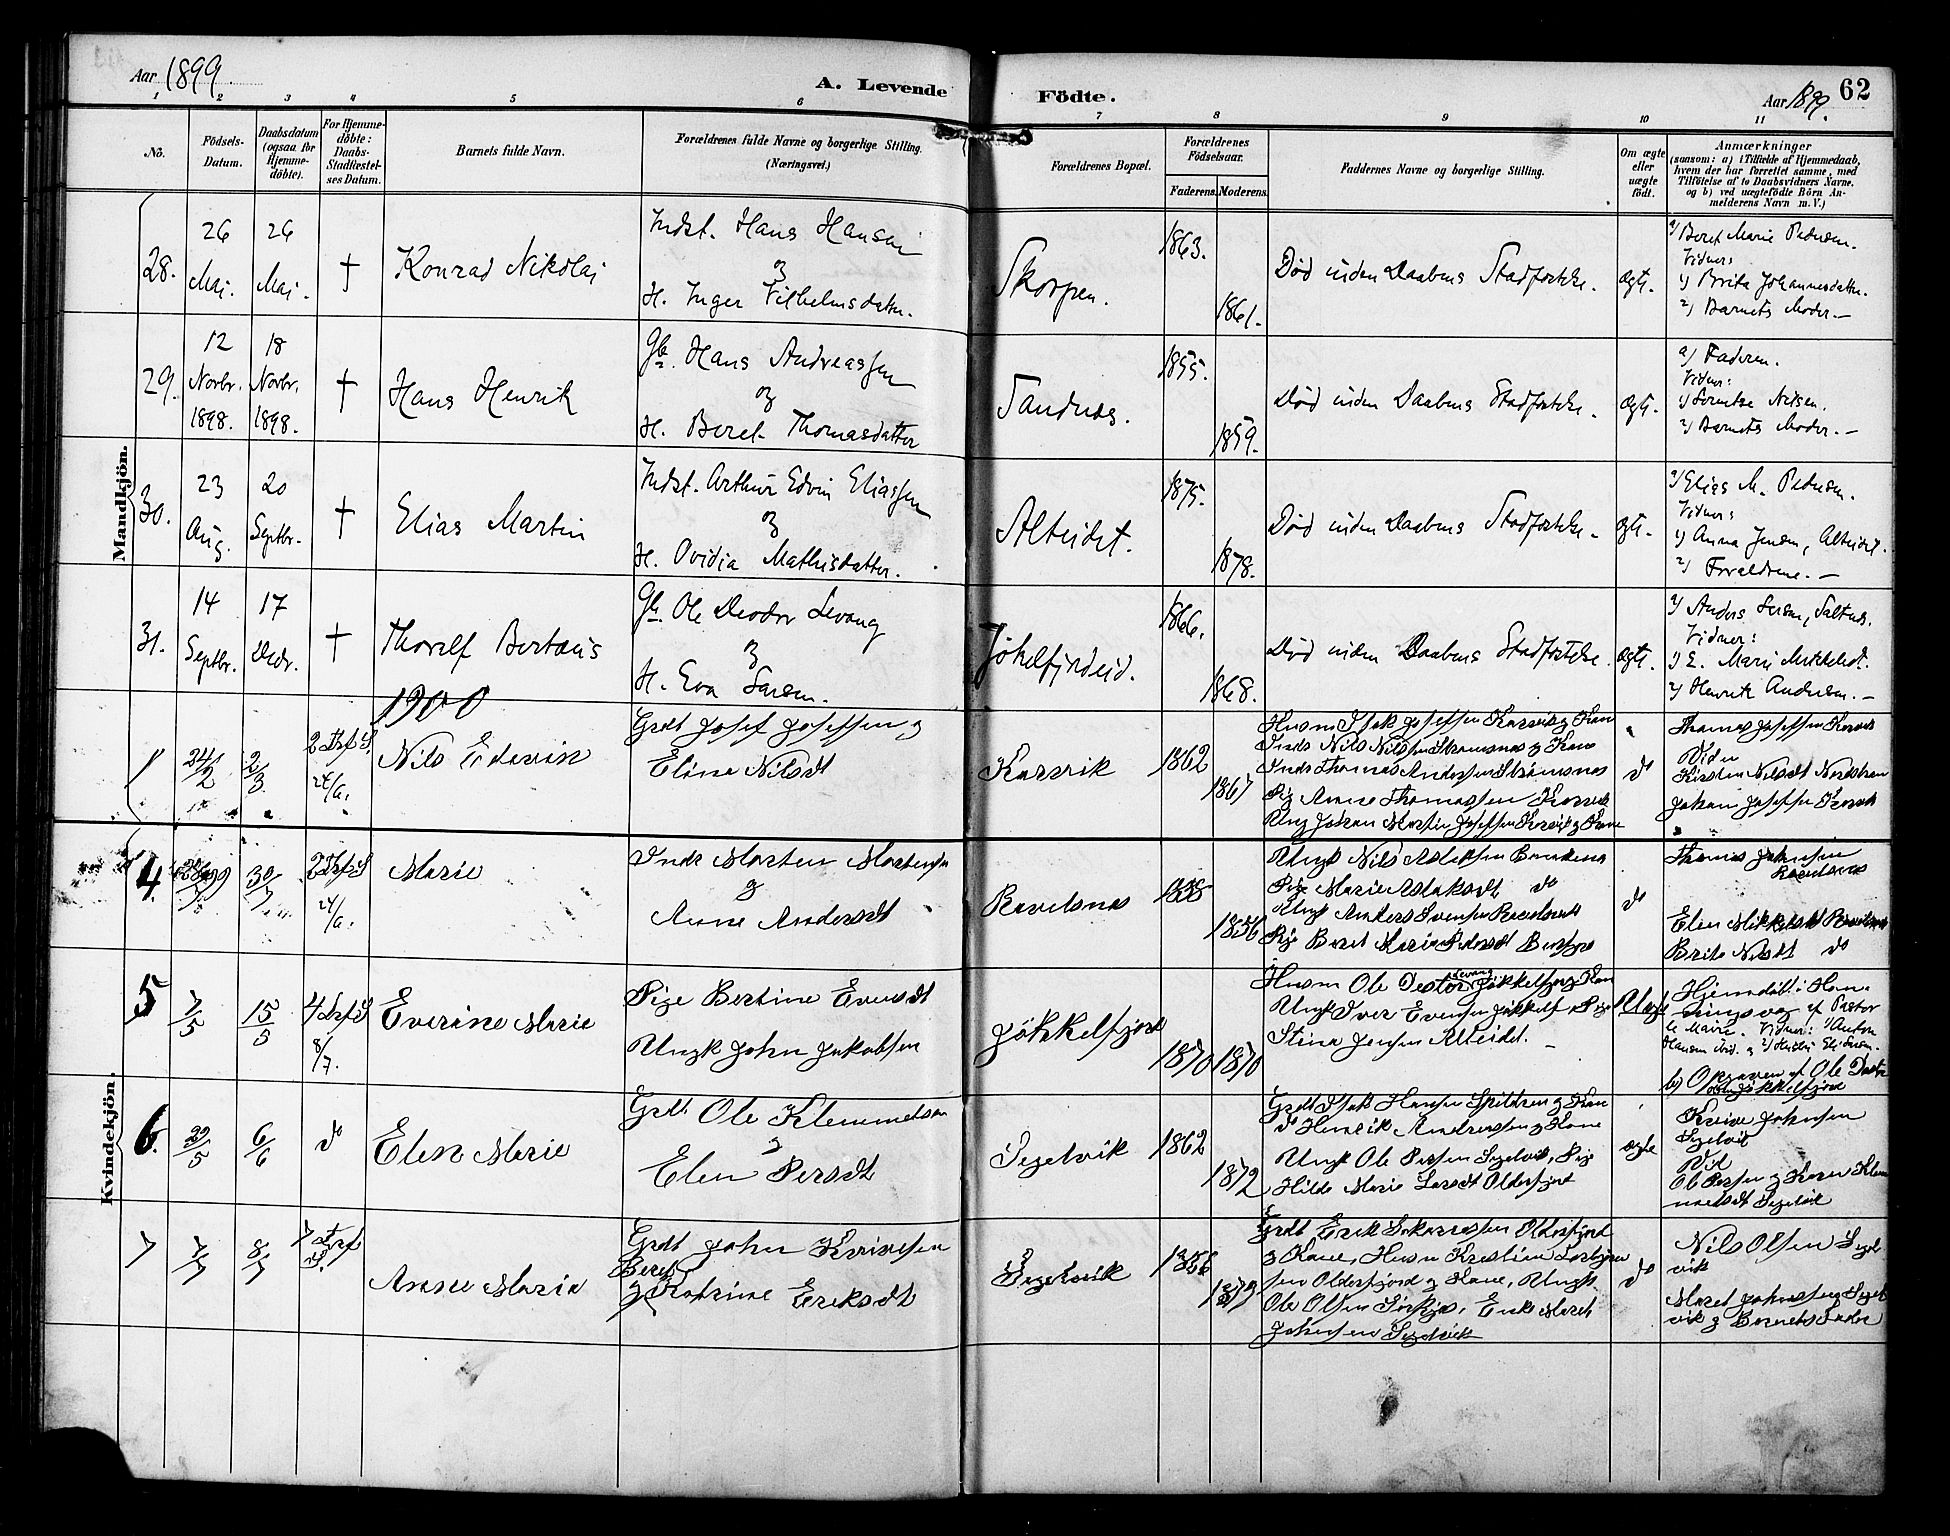 Aar 1899.
A. Levende Födte.
Aar 1899.
62
1 2 3 4 5 6 7 8 9 10 11
No.
Födsels-
Datum.
Daabsdatum
(ogsaa for
Hjemme-
döbte).
For Hjemme-
döbte:
Daabs-
Stadfæstel-
ses Datum.
Barnets fulde Navn.
Forældrenes fulde Navne og borgerlige Stilling.
(Næringsvei.)
Forældrenes Bopæl.
Forældrenes
Födselsaar.
Faderens. Moderens.
Faddernes Navne og borgerlige Stilling.
Om ægte
eller
uægte
födt.
Anmærkninger
(saasom: a) i Tilfælde af Hjemmedaab,
hvem der har forrettet samme, med
Tilföielse af to Daabsvidners Navne,
og b) ved uægtefödte Börn An-
melderens Navn m. V.)
Mandkjön.
28.
26
Mai.
26
Mai.
†
Konrad Nikolai
Indst. Hans Hansen
og
H. Inger Vilhelmsdatter.
Skorpen.
1863.
1861.
Död inden Daabens Stadfæstelse.
ægte.
a) Beret Marie Pedersen.
Vidner:
1) Brita Johannesdatter.
2) Barnets Moder. —
29.
12
Novbr.
1898.
18
Novbr.
1898.
†
Hans Henrik
Gbr. Hans Andreassen
og
H. Beret Thomasdatter
Sandnes.
1855.
1859.
Död inden Daabens Stadfæstelse.
ægte.
a) Faderen.
Vidner:
2) Barnets Moder. —
30.
23
Aug.
20
Septbr.
†
Elias Martin
Indst. Arthur Edvin Eliassen
og
H. Ovidia Mathisdatter.
Alteidet.
1875.
1878.
Död inden Daabens Stadfæstelse.
ægte.
a) Elias M. Pedersen.
Vidner:
1) Anna Jensen, Alteidet.
2) Forældrene. —
31.
14
Septbr.
17
Decbr.
†
Thorolf Bertæus
Gbr. Ole Deodor Levang
og
H. Eva Larsen.
Jökelfjordeid.
1866.
1868.
Död inden Daabens Stadfæstelse.
ægte.
Vidner:
2) Henrik Andersen. —
1900
1
24/2
2/3
24/6.
Nils Edevin
Grdt Josef Josefsen og
Eline Nilsdt
Karvik
1862
1867
Husm Isak Josefsen Karvik og Kone
Inds Nils Nilsen Strömsnes og Kone
Inds Thomas Andersen Strömsnes
Pige Anne Thomassen Karvik
Ungk Johan Martin Josefsen Karvik og Kone
do
Thomas Josefsen Karvik
Viden
Kirsten Nilsdt
Johan Josefsen Karvik
Kvindekjön.
4.
30/7
24/6.
Marie
Inds Morten Mortensen
og
Anne Andersdt
Ravelsnes
1856
Ungk Nils Aslaksen
Pige Marie Aslaksdt do
Ungk Anders Svensen Ravelsnes
Pige Beret Maria Pedersdt
do
Thomas Johnsen
Ravelsnes
Elen Mikkelsdt Ravelsnes
Brite Nilsdt do
5
7/5
15/5
8/7.
Everine Marie
Pige Bertine Evensdt
Ungk John Jakobsen
Jökkelfjord
1870
1870
Husm Ole Deodor Levang Jökkelfjord og Kone
Ungk Iver Evensen Jökkelfj Pige
Stina Jensen Alteidet. —
Uægte
Hjemdöbt i Hon-
ningsvog af Pastor
le Maire. Vidner: 1) Anton
b) Opgaven af Ole Deodor
Jökkelfjord
6.
29/5
6/6
do
Elen Marie
Grdt Ole Klemmetsen
og
Elen Persdt
Segelvik
1862
1872
Grdt Isak Hansen Spildren og Kone
do Henrik Andersen og Kone
Ungk Ole Persen Segelvik, Pige
Hilde Marie Larsdt Olderfjord
ægte
Johnsen
Segelvik
Vid
Ole Persen og Karen Klem
metsdt Segelvik
7
7/7
8/7
Anne Marie
Grdt John Kariusen
Beret
og Katrine Eriksdt
Segelvik
1856
1879
Grdt Erik Sakariassen Olderfjord
og Kone, Husm Kristian Torbjörn
sen Olderfjord og Kone, Ungk
Ole Olsen, Enke Maret
Johnsen Segelvik
do
Nils Olsen Segel
vik
Maret Johnsen Segel
vik og Barnets Fader